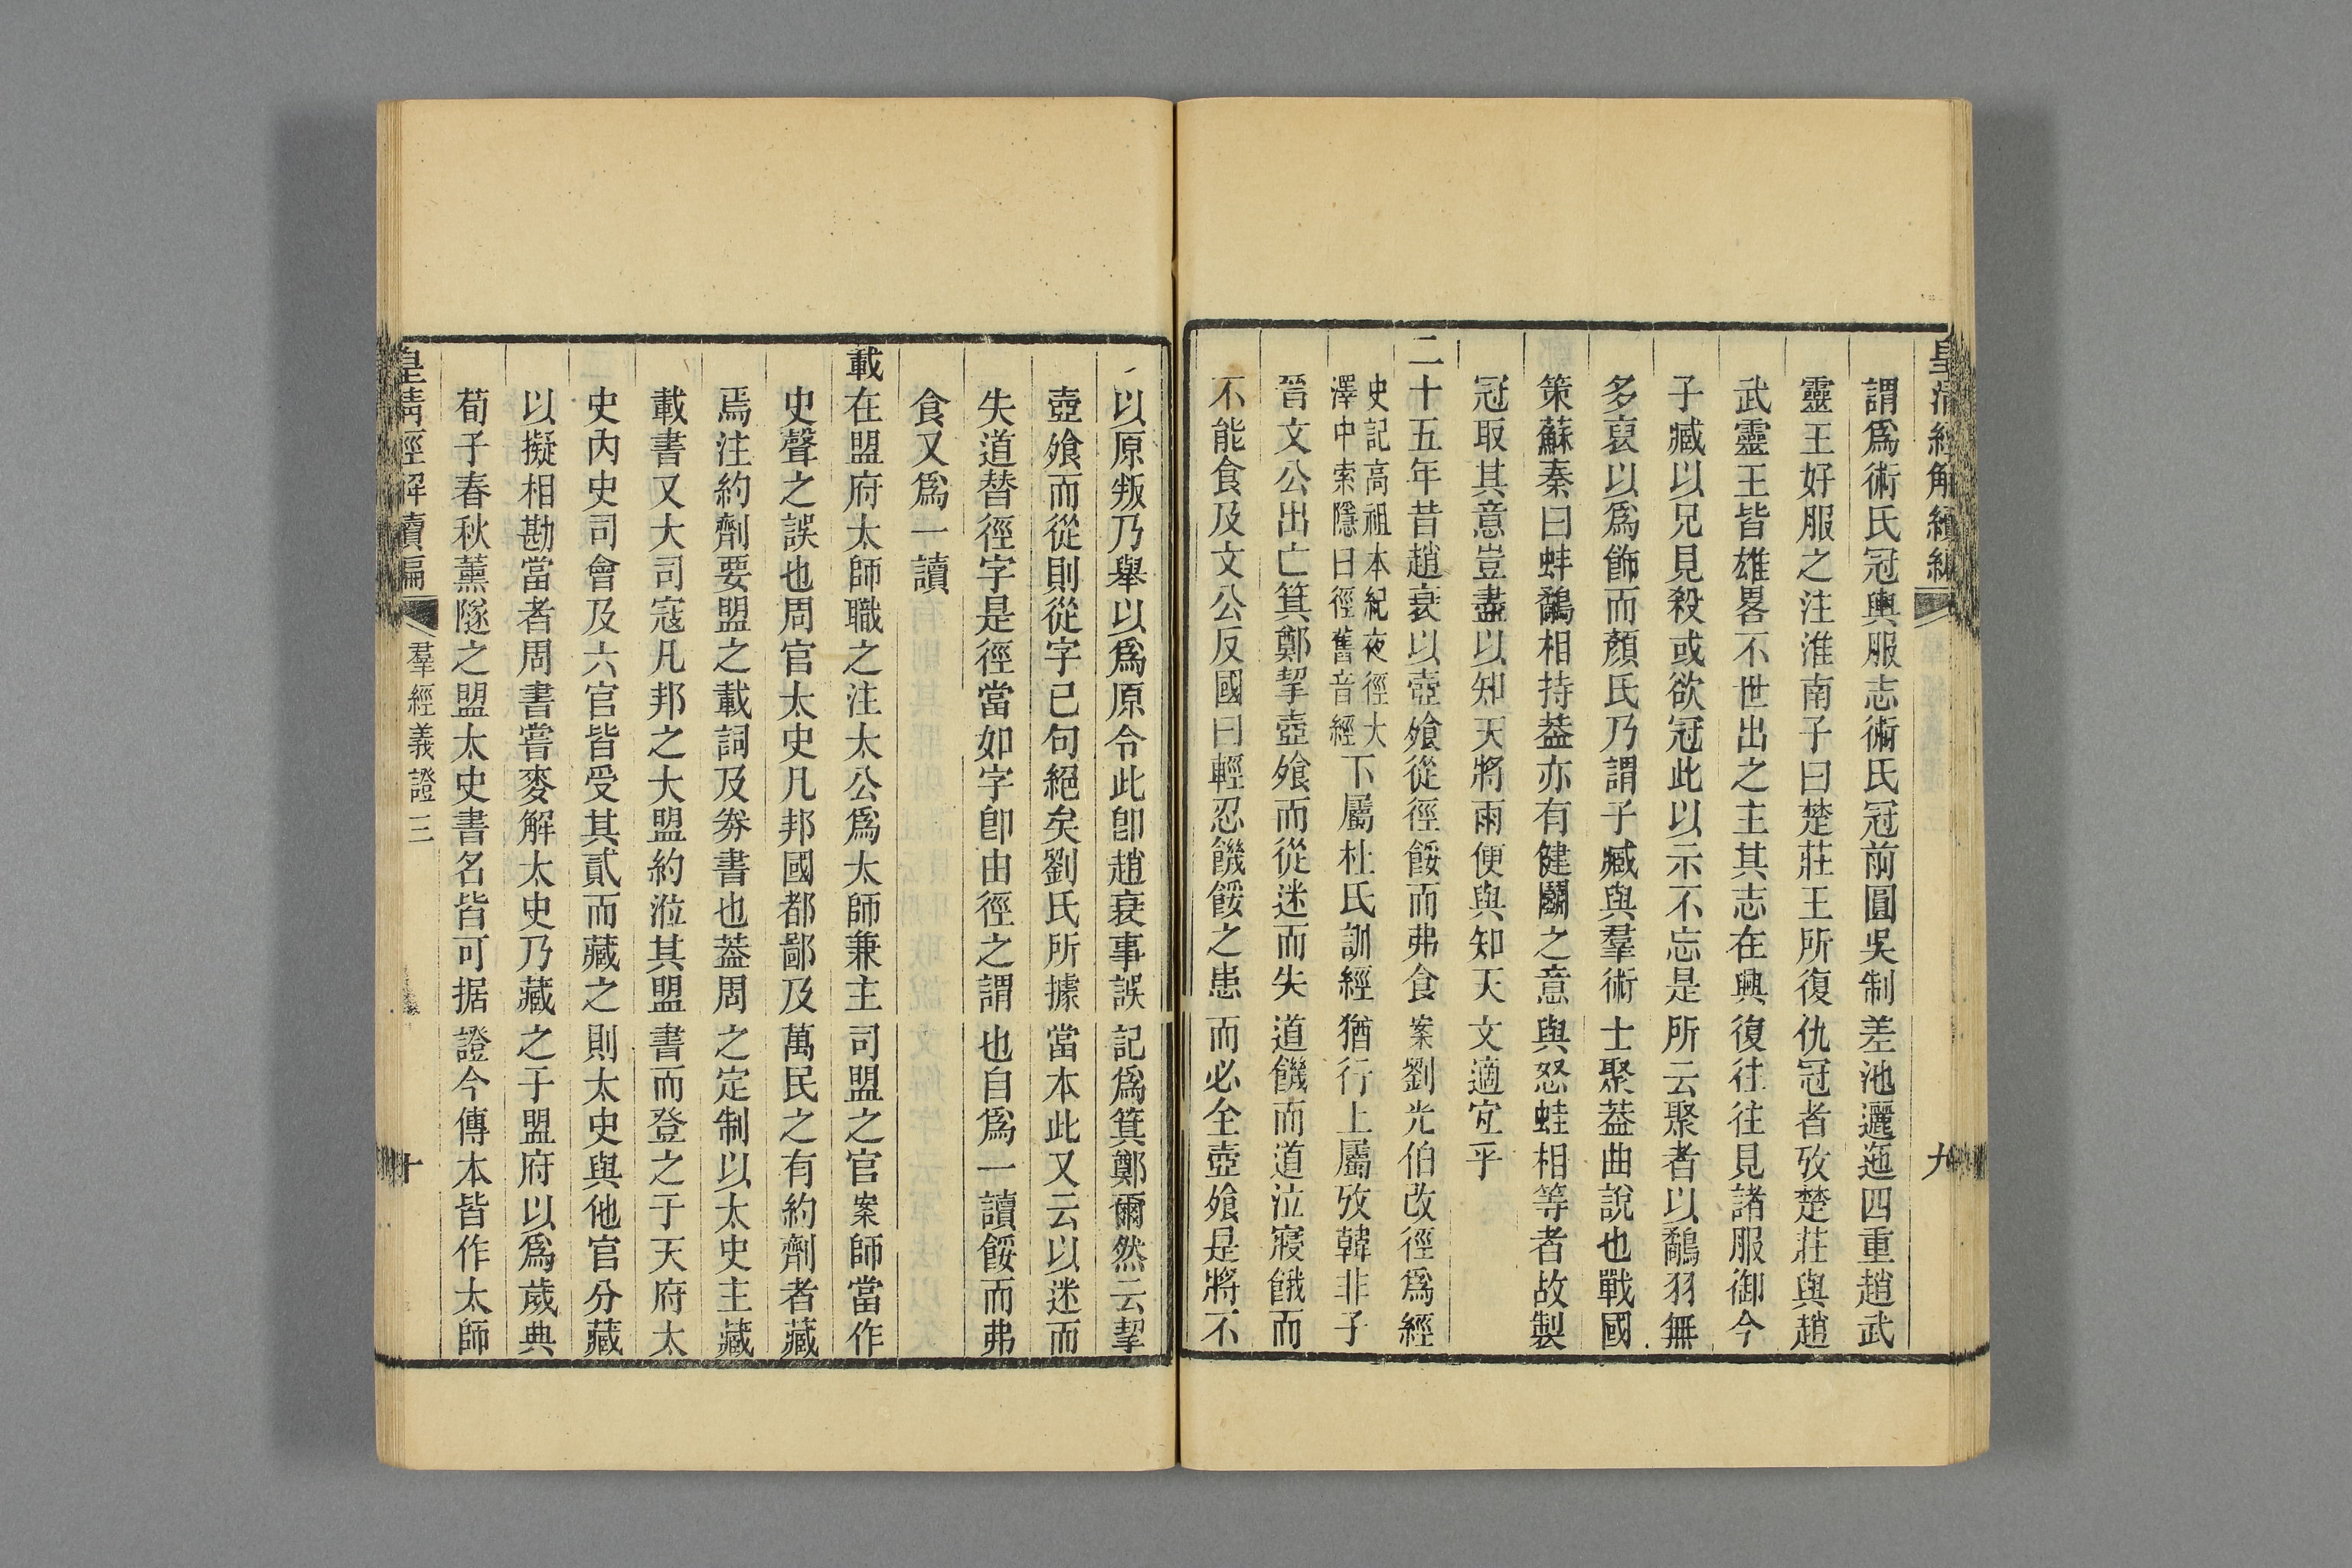 皇清經解續編
九
謂爲術氏冠輿服志術氏冠前圓吳制差池邐迤四重趙武
靈王好服之注淮南子曰楚莊王所復仇冠者攷楚莊與趙
武靈王皆雄畧不世出之主其志在興復往往見諸服御今
子臧以兄見殺或欲冠此以示不忘是所云聚者以鷸羽無
多裒以爲飾而顏氏乃謂子臧與羣術士聚葢曲說也戰國
策蘇秦曰蚌鷸相持葢亦有健鬭之意與怒蛙相等者故製
冠取其意豈盡以知天將雨便與知天文適宐乎
二十五年昔趙衰以壺飧從徑餒而弗食案劉光伯改徑爲經
史記高祖本紀夜徑大
澤中索隱曰徑舊音經
下屬杜氏訓經猶行上屬攷韓非子
晉文公出亡箕鄭挈壺飧而從迷而失道饑而道泣寢餓而
不能食及文公反國曰輕忍饑餒之患而必全壺飧是將不
以原叛乃舉以爲原令此卽趙衰事誤記爲箕鄭爾然云挈
壺飧而從則從字已句絕矣劉氏所據當本此又云以迷而
失道替徑字是徑當如字卽由徑之謂也自爲一讀餒而弗
食又爲一讀
載在盟府太師職之注太公爲太師兼主司盟之官案師當作
史聲之誤也周官太史凡邦國都鄙及萬民之有約劑者藏
焉注約劑要盟之載詞及券書也葢周之定制以太史主藏
載書又大司寇凡邦之大盟約涖其盟書而登之于天府太
史內史司會及六官皆受其貳而藏之則太史與他官分藏
以擬相勘當者周書嘗麥解太史乃藏之于盟府以爲歲典
荀子春秋薰隧之盟太史書名皆可据證今傳本皆作太師
皇清經解續編
羣經義證三
十